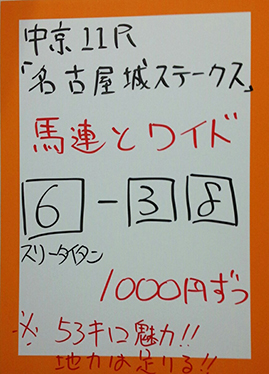 中京11R
「名古屋城ステークス」
馬連とワイド
6-38
スリータイタン
1000円ずつ
※ 53キロ魅力!!
地力は足りる!!